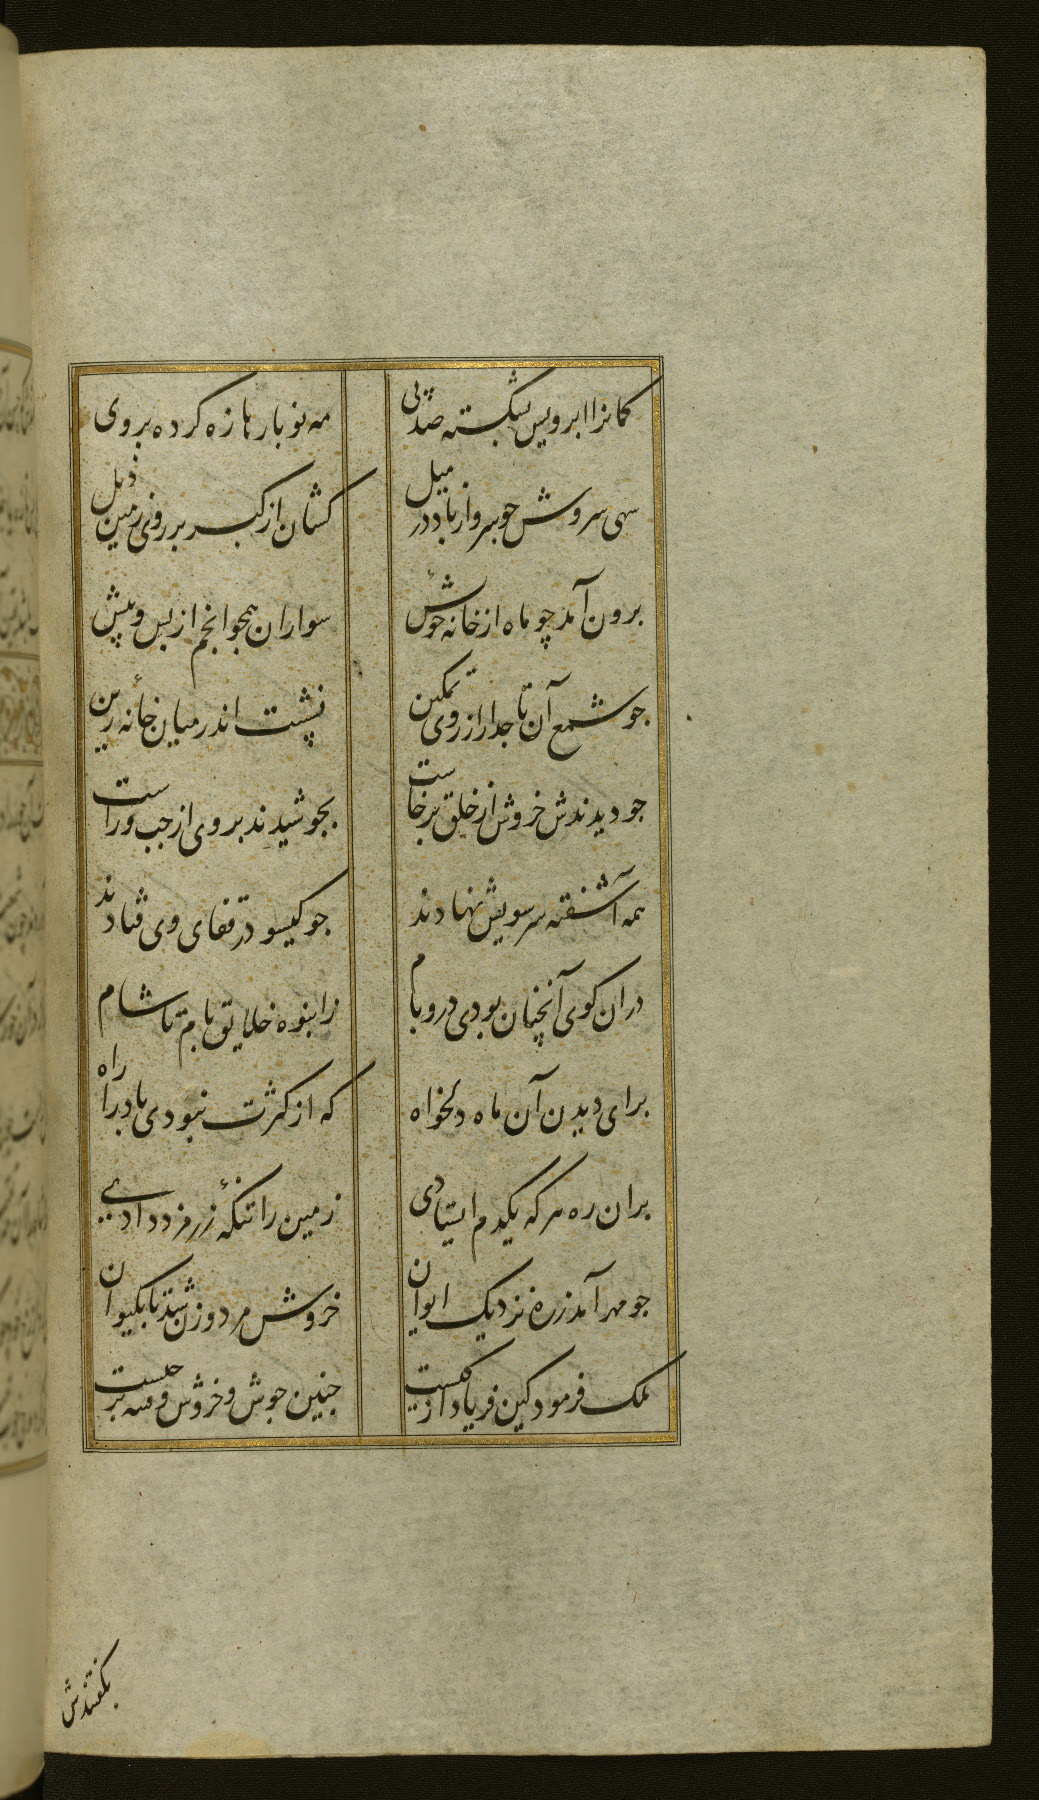 کمانرا ابرویس شکسته صد پی
مه نو بارها زه کرده بر وی
سهی سروش جو سرو از باد در میل
کشان از کبر بر روی زمین ذیل
برون آمد چو ماه از خانه خوش
سواران همجو انجم از پس و پیش
جو شمع آن تاجدار از روی تمکین
نشست اندر میان خانه زین
جو دیدندش خروش از خلق برخاست
بجوشیدند بر وی از جب و راست
همه آشفته سر سویش نهادند
جو کیسو در قفای وی فتادند
در ان کوی آنچنان بودی در و بام
ز انبوه خلایق بام تا شام
برای دیدن آن ماه دلخواه
که از کثرت نبودی باد را راه
بر ان ره هر که یکدم ایستادی
زمین را تنکهٔ زر مزد دادی
جو مهر آمد ز ره نزدیک ایوان
خروش مرد و زن شد تا بکیوان
ملک فرمود کین فریاد از کیست
جنین جوش و خروش و فتنه بر جیست
بکفتندش